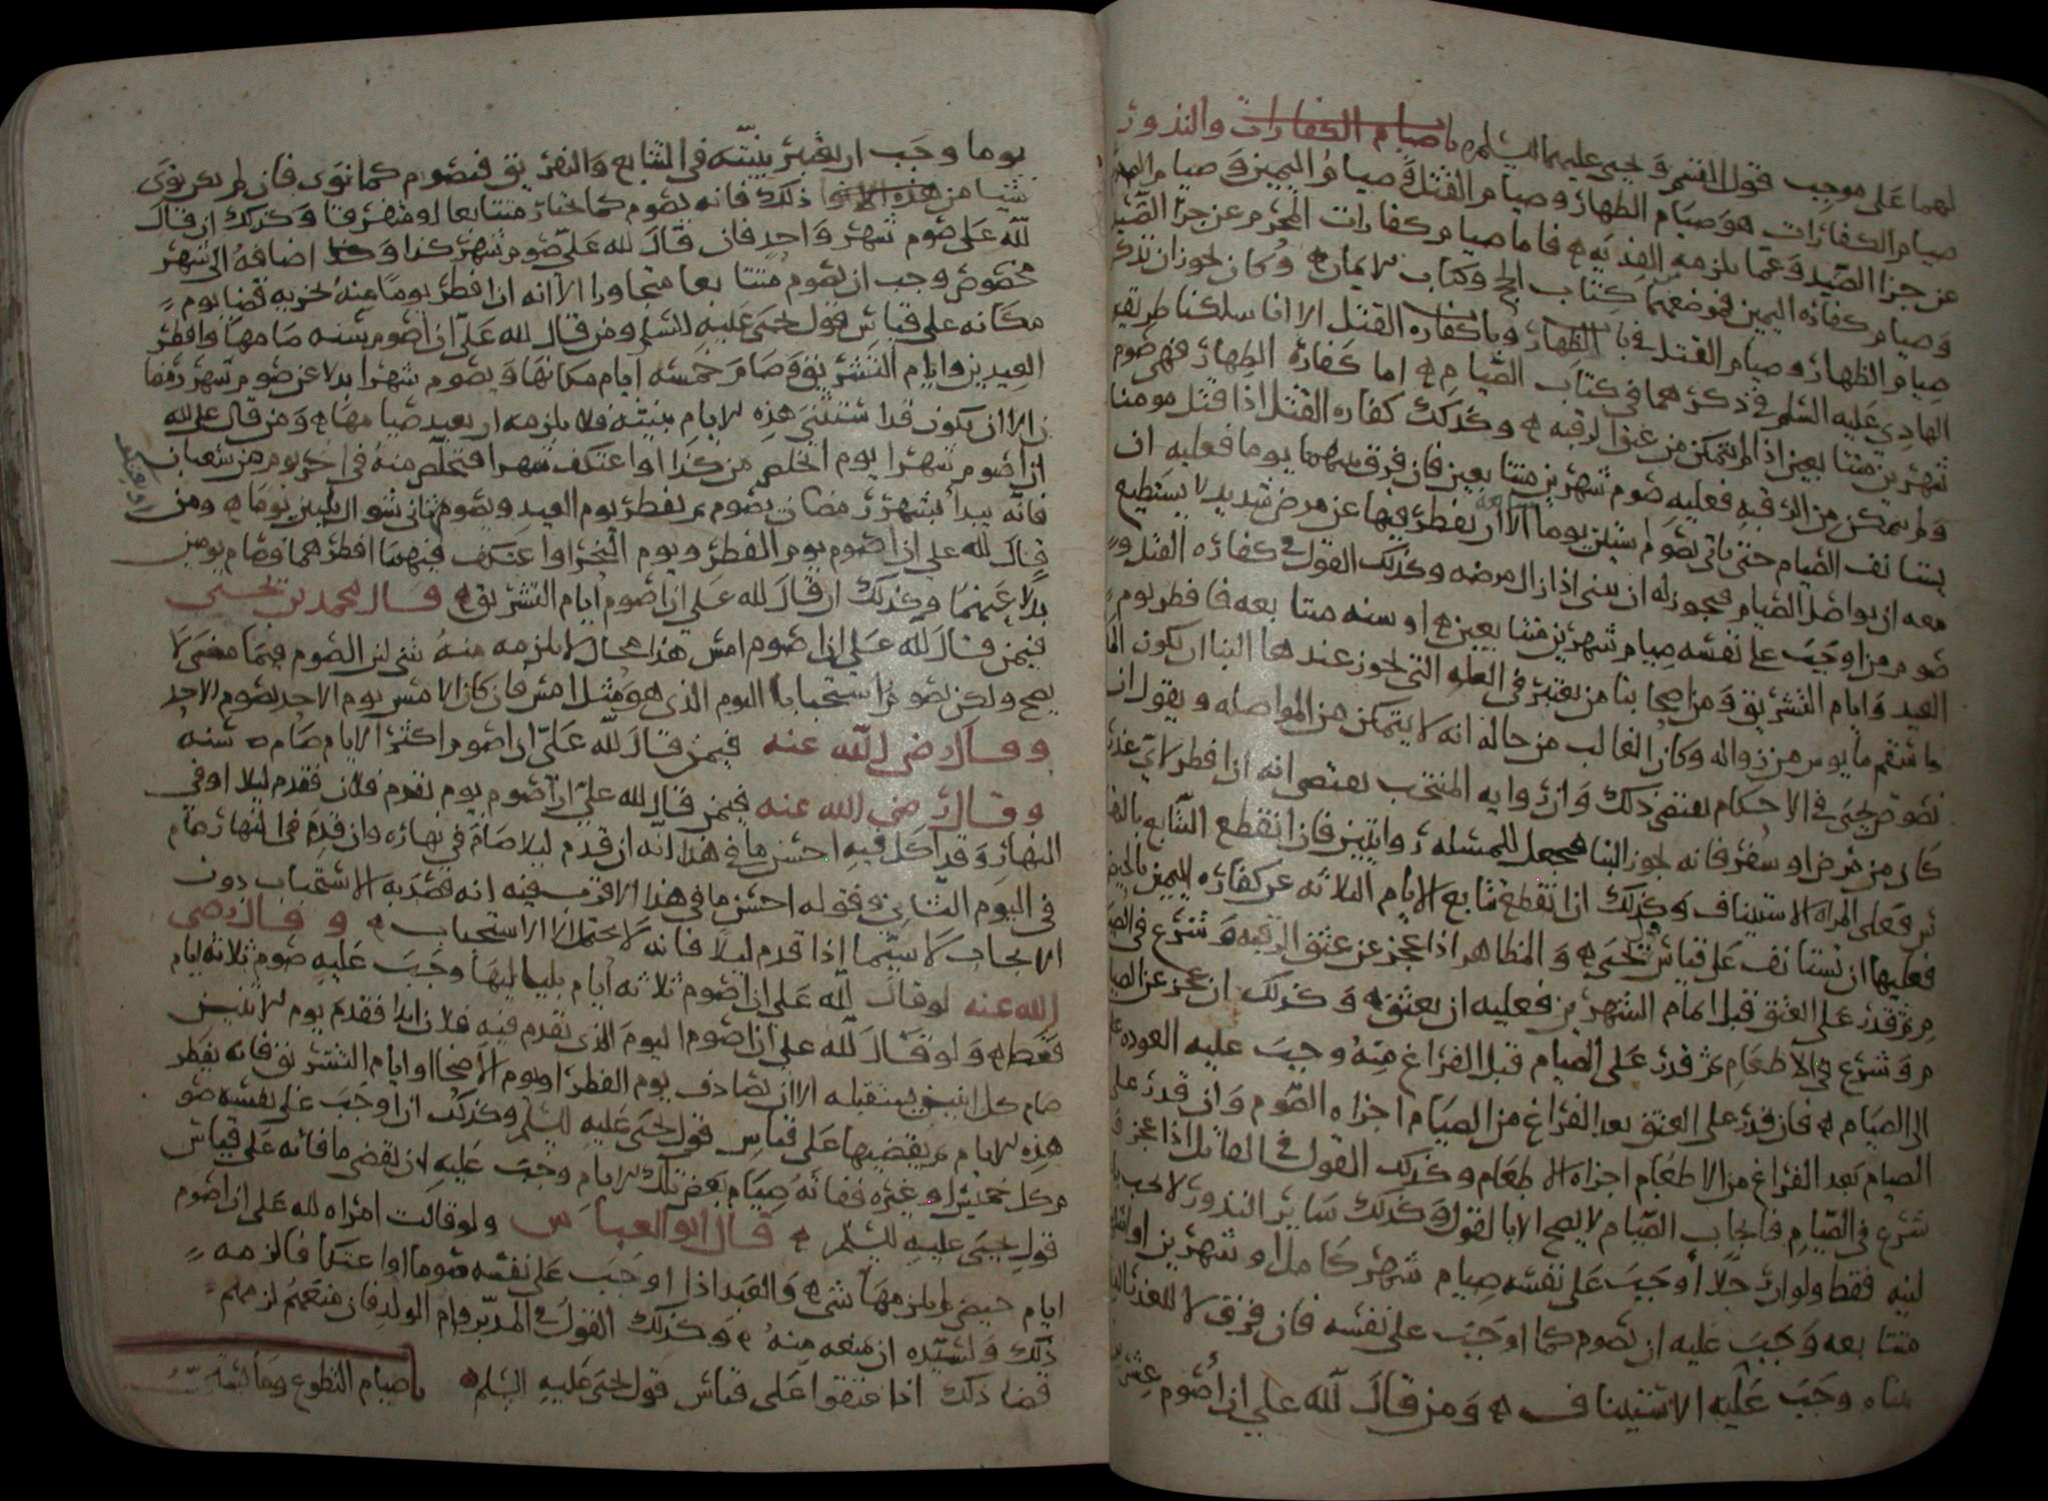 لهما على موجب قول القسم ويحيى عليهما السلم باب صيام الكفارات والنذور
صيام الكفارات هو صيام الظهار وصيام القتل وصيام اليمين وصيام
عن جزا الصيد وعما يلزمه الفديه فاما صيام كفارات المحرم عن جزا الصيد
وصيام كفاره اليمين فموضعهما كتاب الحج وكتاب الايمان وكان يجوز ان نذكر
صيام الظهار وصيام القتل في باب الظهار وباب كفاره القتل الا انا سلكنا طريقه
الهادي عليه السلم في ذكرهما في كتاب الصيام اما كفاره الظهار فهي صوم
شهرين متتابعين اذا لم يتمكن من عتق الرقبه وكذلك كفاره القتل اذا قتل مومنا
ولم يتمكن من الرقبه فعليه صوم شهرين متتابعين فان فرق بينهما يوما فعليه ان
يستانف الصيام حتى ياتي بصوم ستين يوما الا ان يفطر فيها عن مرض شديد لا يستطيع
معه ان يواصل الصيام فيجوز له ان يبني اذا زال مرضه وكذلك القول في كفاره القتل و
صوم من اوجب على نفسه صيام شهرين متتابعين او سنه متتابعه فافطر يوم
العيد وايام التشريق ومن اصحابنا من يعتبر في العله التي يجوز عندهما البنا ان يكون
ما سقم مايوس من زواله وكان الغالب من حاله انه لا يتمكن من المواصله ويقول ان
نصوص يحيى في الاحكام يقتضي ذلك وان روايه المنتخب يقتضي انه اذا افطر لاي عذر
كان من مرض او سفر فانه يجوز البنا فيجعل للمسئله روايتين فاذا انقطع التتابع
فعلى المراه الاستيناف وكذلك اذا انقطع تتابع الايام الثلاثه عن كفاره اليمين بالحيض
فعليها ان تستانف على قياس يحيى والمظاهر اذا عجز عن عتق الرقبه وشرع في
ثم قدر على العتق قبل اتمام الشهرين فعليه ان يعتق وكذلك ان عجز عن
وشرع في الاطعام ثم قدر على الصيام قبل الفراغ منه وجب عليه العوده
الى الصيام فان قدر على العتق بعد الفراغ من الصيام اجزاه الصوم وان قدر على
الصيام بعد الفراغ من الاطعام اجزاه الاطعام وكذلك القول في القاتل اذا عجز
شرع في الصيام فايجاب الصيام لا يصح الا بالقول وكذلك ساير النذور لا يجب
لنيه فقط ولو ان رجلا اوجب على نفسه صيام شهر كامل او شهرين او
متتابعه وجب عليه ان يصوم كما اوجب على نفسه فان فرق لا لعذر
بيناه وجب عليه الاستيناف ومن قال لله علي ان اصوم عشرين
يوما وجب ان يعتبر نيته في التتابع والتفريق فيصوم كما نوى فان لم يكن نوى
شيا من ذلك فانه يصوم كما يختار متتابعا او متفرقا وكذلك ان قال
لله علي صوم شهر واحد فان قال لله علي صوم شهر كذا وكذا اضافه الى شهر
مخصوص وجب ان يصوم متتابعا متجاورا الا انه اذا افطر يوما منه يجزيه قضا يوم
مكانه على قياس قول يحيى عليه السلم ومن قال لله علي ان اصوم سنه صامها وافطر
العيدين وايام التشريق وصام خمسه ايام مكانها ويصوم شهرا بدلا عن صوم شهر رمضا
ن الا ان يكون قد استثنى هذه الايام بنيته فلا يلزمه ان يعيد صيامها ومن قال علي لله
ان اصوم شهرا يوم اتخلص من كذا او اعتكف شهرا فتخلص منه في اخر يوم من شعبان
فانه يبدا بشهر رمضان يصوم ثم يفطر يوم العيد ويصوم ثاني شوال ثلثين يوما ومن
قال لله علي ان اصوم يوم الفطر ويوم النحر او اعتكف فيهما افطرهما وصام يومين
بدلا عنهما وكذلك ان قال لله علي ان اصوم ايام التشريق قال محمد بن يحيى
فيمن قال لله علي ان اصوم امس هذا محال لا يلزمه منه شي لان الصوم فيما مضى لا
يصح ولكن يصوم استحبابا اليوم الذي هو مثل امس فان كان الامس يوم الاحد يصوم الاحد
وقال رضي الله عنه فيمن قال لله علي ان اصوم اكثر الايام صام سنه
وقال رضي الله عنه فيمن قال لله علي ان اصوم يوم يقدم فلان فقدم ليلا او في
النهار وقد اكل فيه احسن ما في هذا انه ان قدم ليلا صام في نهاره وان قدم في النهار صام
في اليوم الثاني وقوله احسن ما في هذا الاقرب فيه انه قصد به الاستحباب دون
الايجاب لا سيما اذا قدم ليلا فانه لا يحتمل الا الاستحباب وقال رضي
الله عنه لو قال لله علي ان اصوم ثلاثه ايام بلياليها وجب عليه صوم ثلاثه ايام
فقط ولو قال لله علي ان اصوم اليوم الذي يقدم فيه فلان ابدا فقدم يوم الاثنين
صام كل اثنين يستقبله الا ان يصادف يوم الفطر او يوم الاضحا او ايام التشريق فانه يفطر
هذه الايام ثم يقضيها على قياس قول يحيى عليه السلم وكذلك ان اوجب على نفسه صو
م كل خميس او غيره ففاته صيام بعض تلك الايام وجب عليه ان يقضي ما فاته على قياس
قول يحيى عليه السلم قال ابو العباس ولو قالت امراه لله علي ان اصوم
ايام حيضي لم يلزمها شي والعبد اذا اوجب على نفسه صوما او اعتكافا لزمه
ذلك ولسيده ان يمنعه منه وكذلك القول في المدبر وام الولد فان منعهم لزمهم
قضا ذلك اذا عتقوا على قياس قول يحيى عليه السلم باب صيام التطوع وما